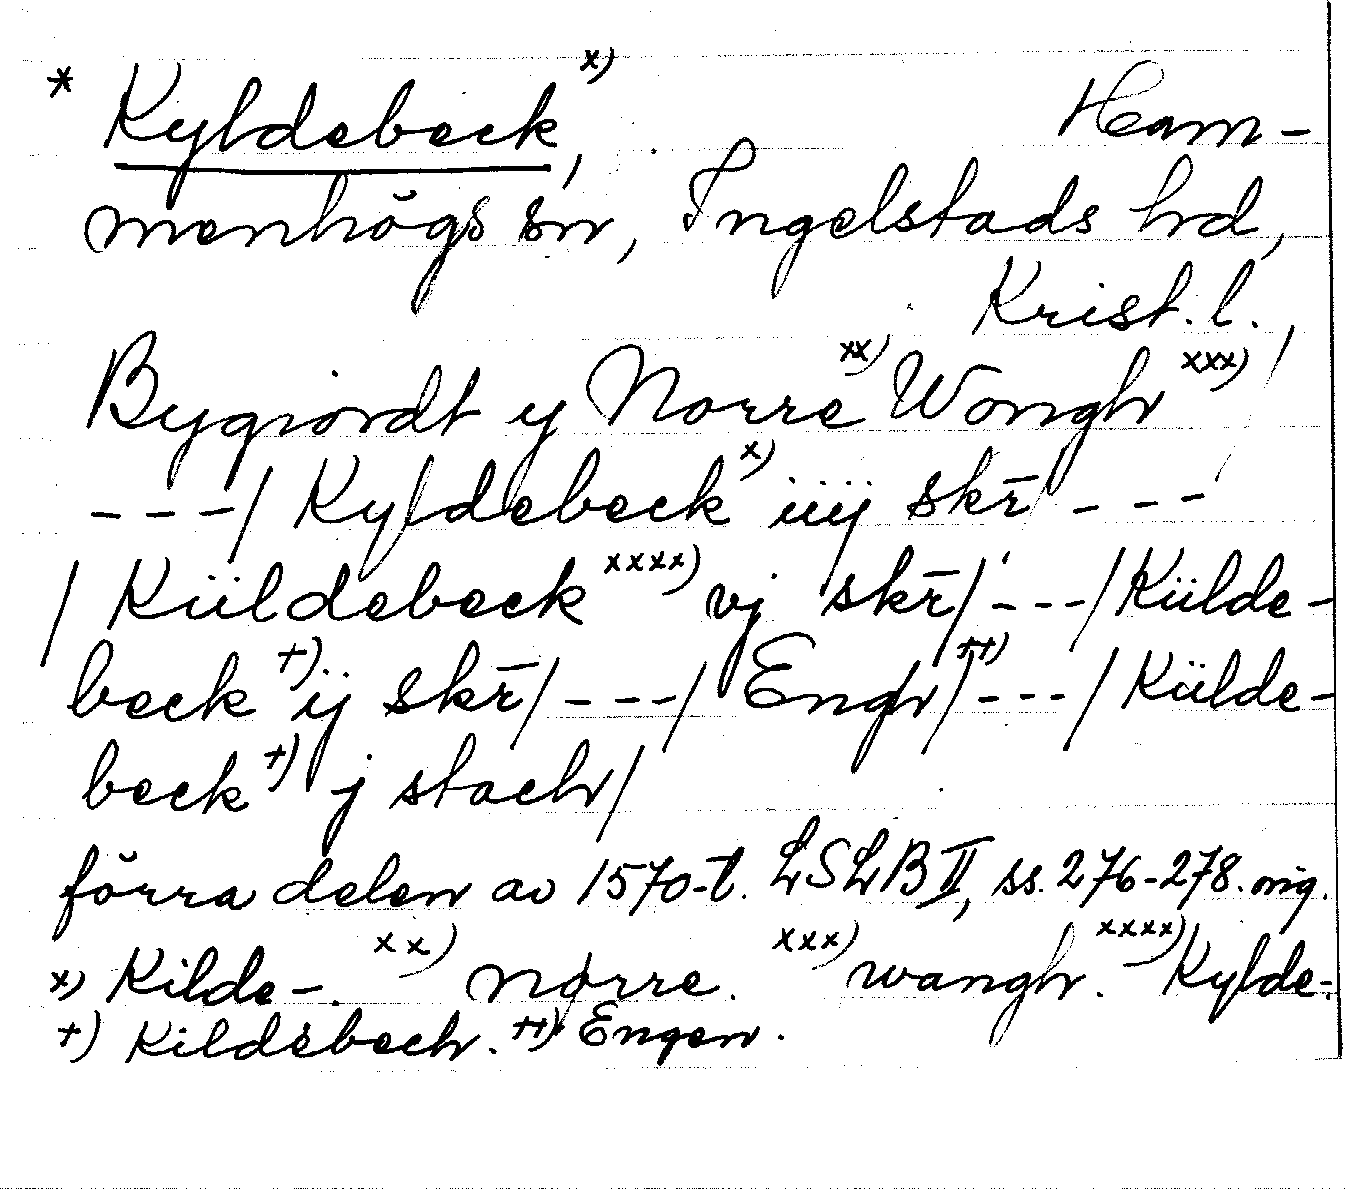 * Kyldebeck x),   Ham-
menhögs sn, Ingelstads hd,
Krist. l.,
Bygiordt y Norre xx) Wongh xxx)
---/ Kyldebeck x) iiij skr̄/ ---
/ Küldebeck xxxx) vj skr̄/ ---/ Külde-
beck +) ij skr̄/ ---/ Engh ++)/ ---/ Külde-
beck +) j stach/
förra delen av 1570-t. LSLB II, ss. 276-278. orig.
x) Kilde-. xx) nørre. xxx) wangh. xxxx) Kylde-.
+) Kildebech. ++) Engen.